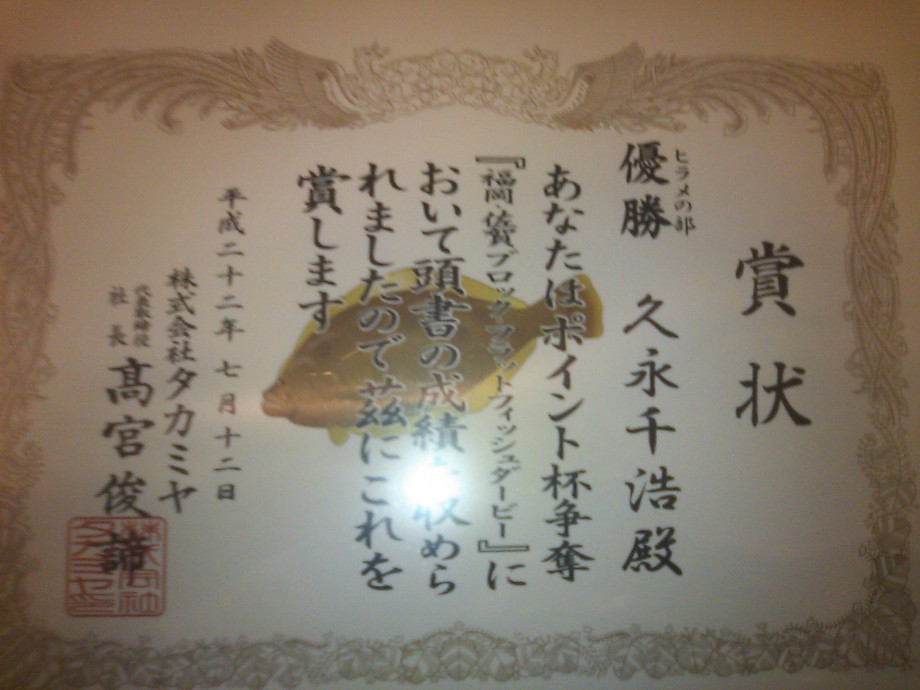 賞状
ヒラメの部
優勝 久永千浩殿
あなたはポイント杯争奪
『福岡・佐賀ブロックフラットフィッシュダービー』に
おいて頭書の成績を収めら
れましたので茲にこれを
賞します
平成二十二年七月十二日
株式会社タカミヤ
代表取締役
社長
髙宮俊諦